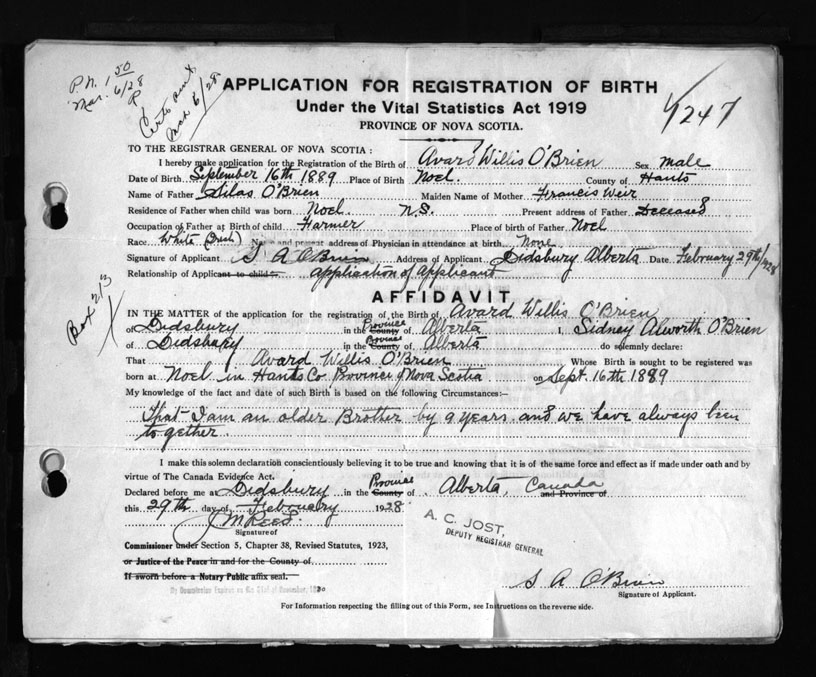 P.N. 1 50
Mar. 6/28
P
Certo sent
Mar 6/28
4247
APPLICATION FOR REGISTRATION OF BIRTH
Under the Vital Statistics Act 1919
PROVINCE OF NOVA SCOTIA.
TO THE REGISTRAR GENERAL OF NOVA SCOTIA:
I hereby make application for the Registration of the Birth of Avard Willis O'Brien Sex male
Date of Birth September 16th 1889 Place of Birth Noel County of Hants
Name of Father Silas O'Brien Maiden Name of Mother Francis Weir
Residence of Father when child was born Noel N.S. Present address of Father Deceased
Occupation of Father at Birth of child Farmer Place of birth of Father Noel
Race White (Irish) Name and present address of Physician in attendance at birth None
Signature of Applicant S A O'Brien Address of Applicant Didsbury Alberta Date February 29th/1928
Relationship of Applicant to child application of applicant
AFFIDAVIT
IN THE MATTER of the application for the registration of the Birth of Avard Willis O'Brien
of Didsbury in the County Province of Alberta I, Sidney Alworth O'Brien
of Didsbury in the County Province of Alberta do solemnly declare:
That Avard Willis O'Brien Whose Birth is sought to be registered was
born at Noel in Hants Co Province of Nova Scotia on Sept. 16th 1889
My knowledge of the fact and date of such Birth is based on the following Circumstances:—
that I am an older Brother by 9 years and we have always been
together.
I make this solemn declaration conscientiously believing it to be true and knowing that it is of the same force and effect as if made under oath and by
virtue of The Canada Evidence Act.
Declared before me at Didsbury in the County Province of Alberta, Canada and Province of
this 29th day of February 1928
J M Reed.
Signature of
Commissioner under Section 5, Chapter 38, Revised Statutes, 1923,
or Justice of the Peace in and for the County of
If sworn before a Notary Public affix seal.
My Commission Expires on the 31st of December, 1930
A. C. JOST,
DEPUTY REGISTRAR GENERAL
S A O'Brien
Signature of Applicant.
For Information respecting the filling out of this Form, see Instructions on the reverse side.
Box 213